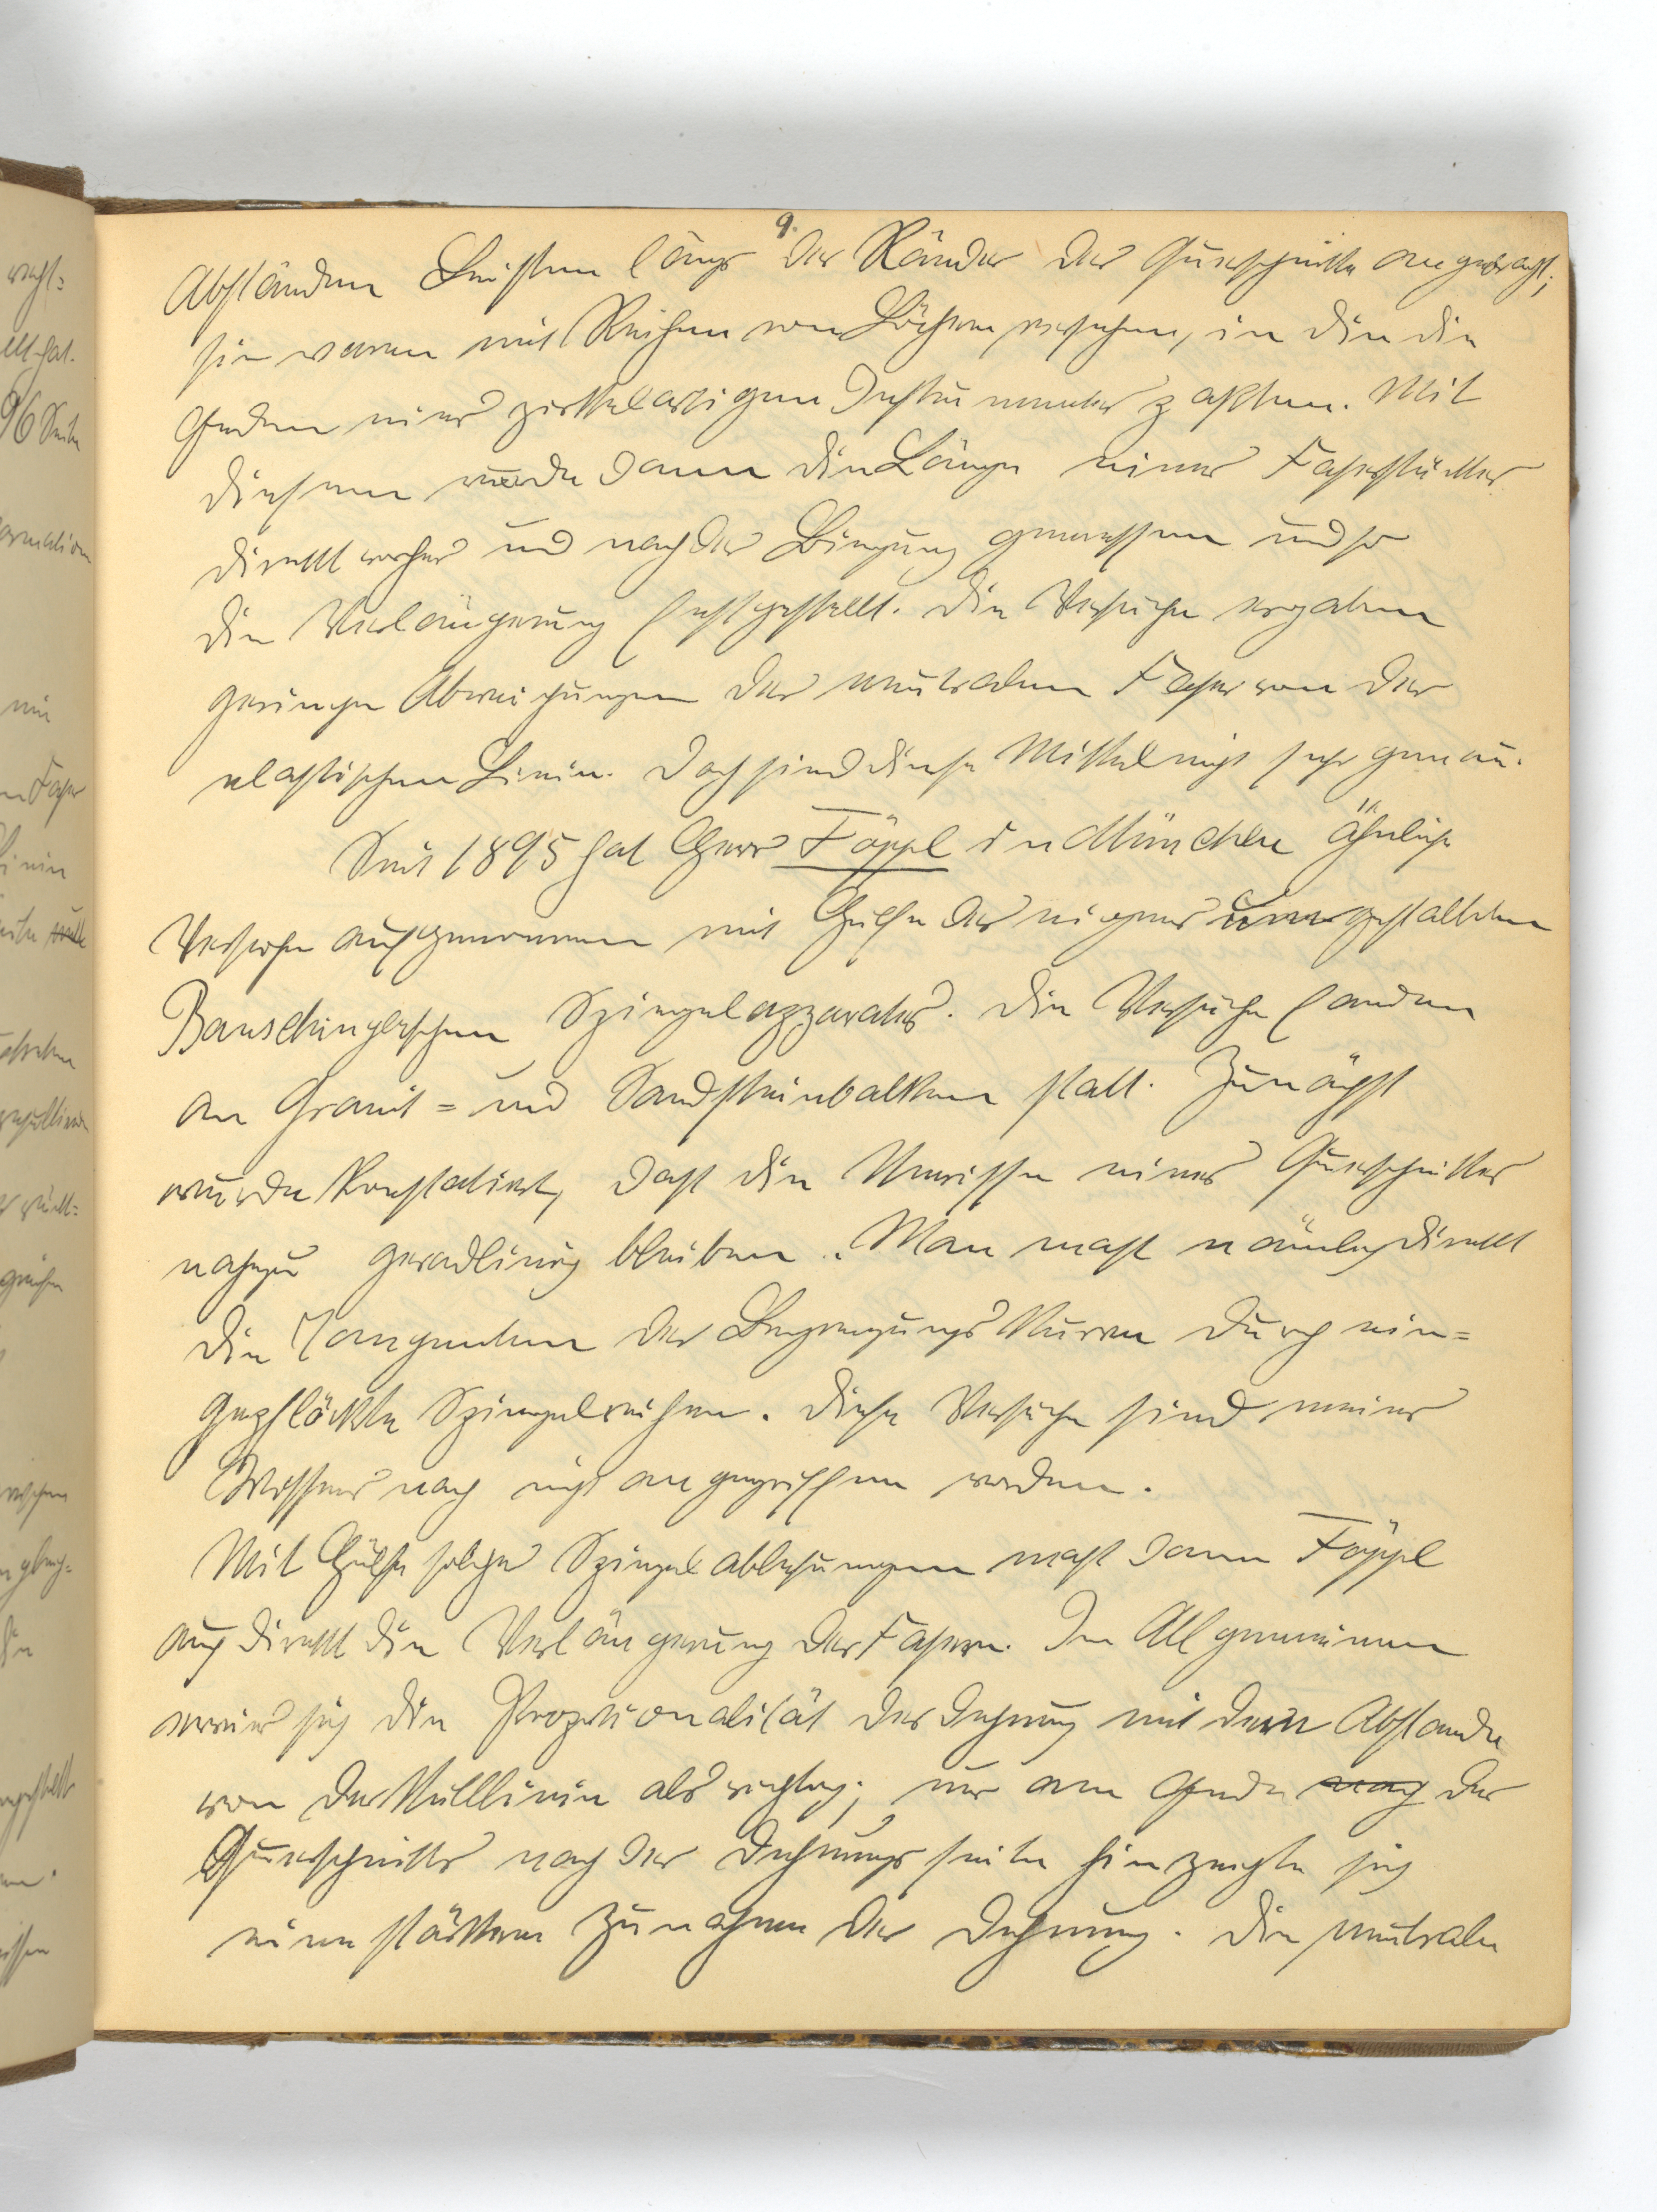 9.
Abständen Leisten längs der Ränder der Querschnitte angebracht;
sie waren mit Reihen von Löchern versehen, in die die
Enden eines zirkelartigen Instrumentes paßten. Mit
diesem wurde dann die Länge eines Faserstückes
direkt vorher und nach der Biegung gemessen und so
die Verlängerung festgestellt. Die Versuche ergaben
geringe Abweichungen der neutralen Faser von der
elastischen Linie. Doch sind diese Mittel nicht sehr genau.
Seit 1895 hat Herr Föppl in München ähnliche
Versuche aufgenommen mit Hülfe des eigens umgestalteten
Bauschingerschen Spiegelapparates. Die Versuche fanden
an Granit= und Sandsteinbalken statt. Zunächst
wurde konstatiert, daß die Umrisse eines Querschnittes
nahezu geradlinig bleiben. Man maß nämlich direkt
die Tangenten der Begrenzungskurven durch ein=
gepflöckte Spiegelreihen. Diese Versuche sind meines
Wissens noch nicht angegriffen worden.
Mit Hülfe solcher Spiegelablesungen maß dann Föppl
auch direkt die Verlängerung der Fasern. Im Allgemeinen
erwies sich die Proportionalität der Dehnung mit dem Abstande
von der Nulllinie als richtig; nur am Ende nach der
Querschnitts nach der Dehnungsseite hin zeigte sich
eine stärkere Zunahme der Dehnung. Die neutrale
wechs=
96 Seite